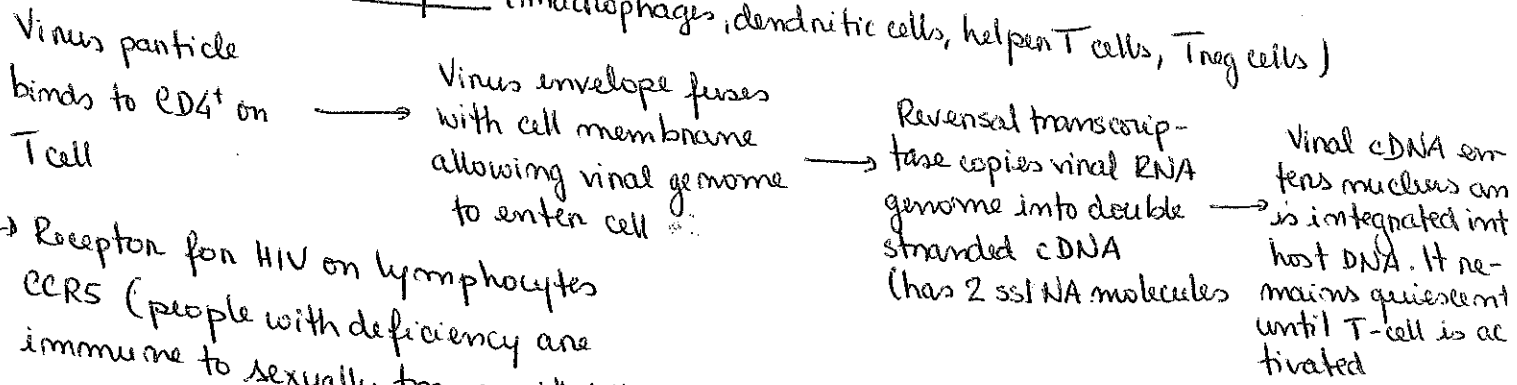 (macrophages, dendritic cells, helper T cells, Treg cells)
Virus particle
binds to CD4+ on
T cell
→ Virus envelope fuses
with cell membrane
allowing viral genome
to enter cell
→ Reversal transcrip-
tase copies viral RNA
genome into double
stranded cDNA
(has 2 ss RNA molecules
→ Viral cDNA en-
ters nucleus an
is integrated int
host DNA. It re-
mains quiescent
until T-cell is ac
tivated
→ Receptor for HIV on lymphocytes
CCR5 (people with deficiency are
immune to sexually